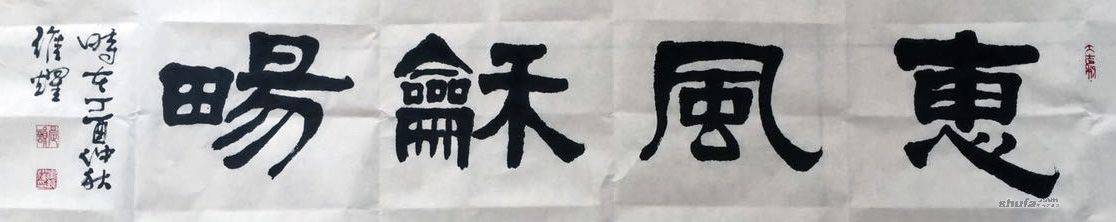 惠風龢暢
時在丁酉仲秋
維耀
shufa